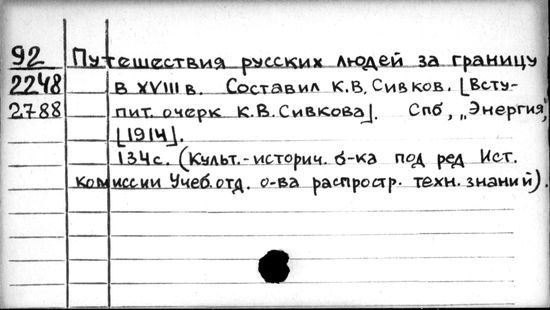 92 Путешествия русских людей за границу
2248 в XVIII в. Составил К.В. Сивков. [Всту-
2788 пит. очерк К.В.Сивкова]. Спб, „Энергия",
[1914].
134с. (Культ.-историч. б-ка под ред Ист.
комиссии Учеб.отд. о-ва распростр. техн. знаний).